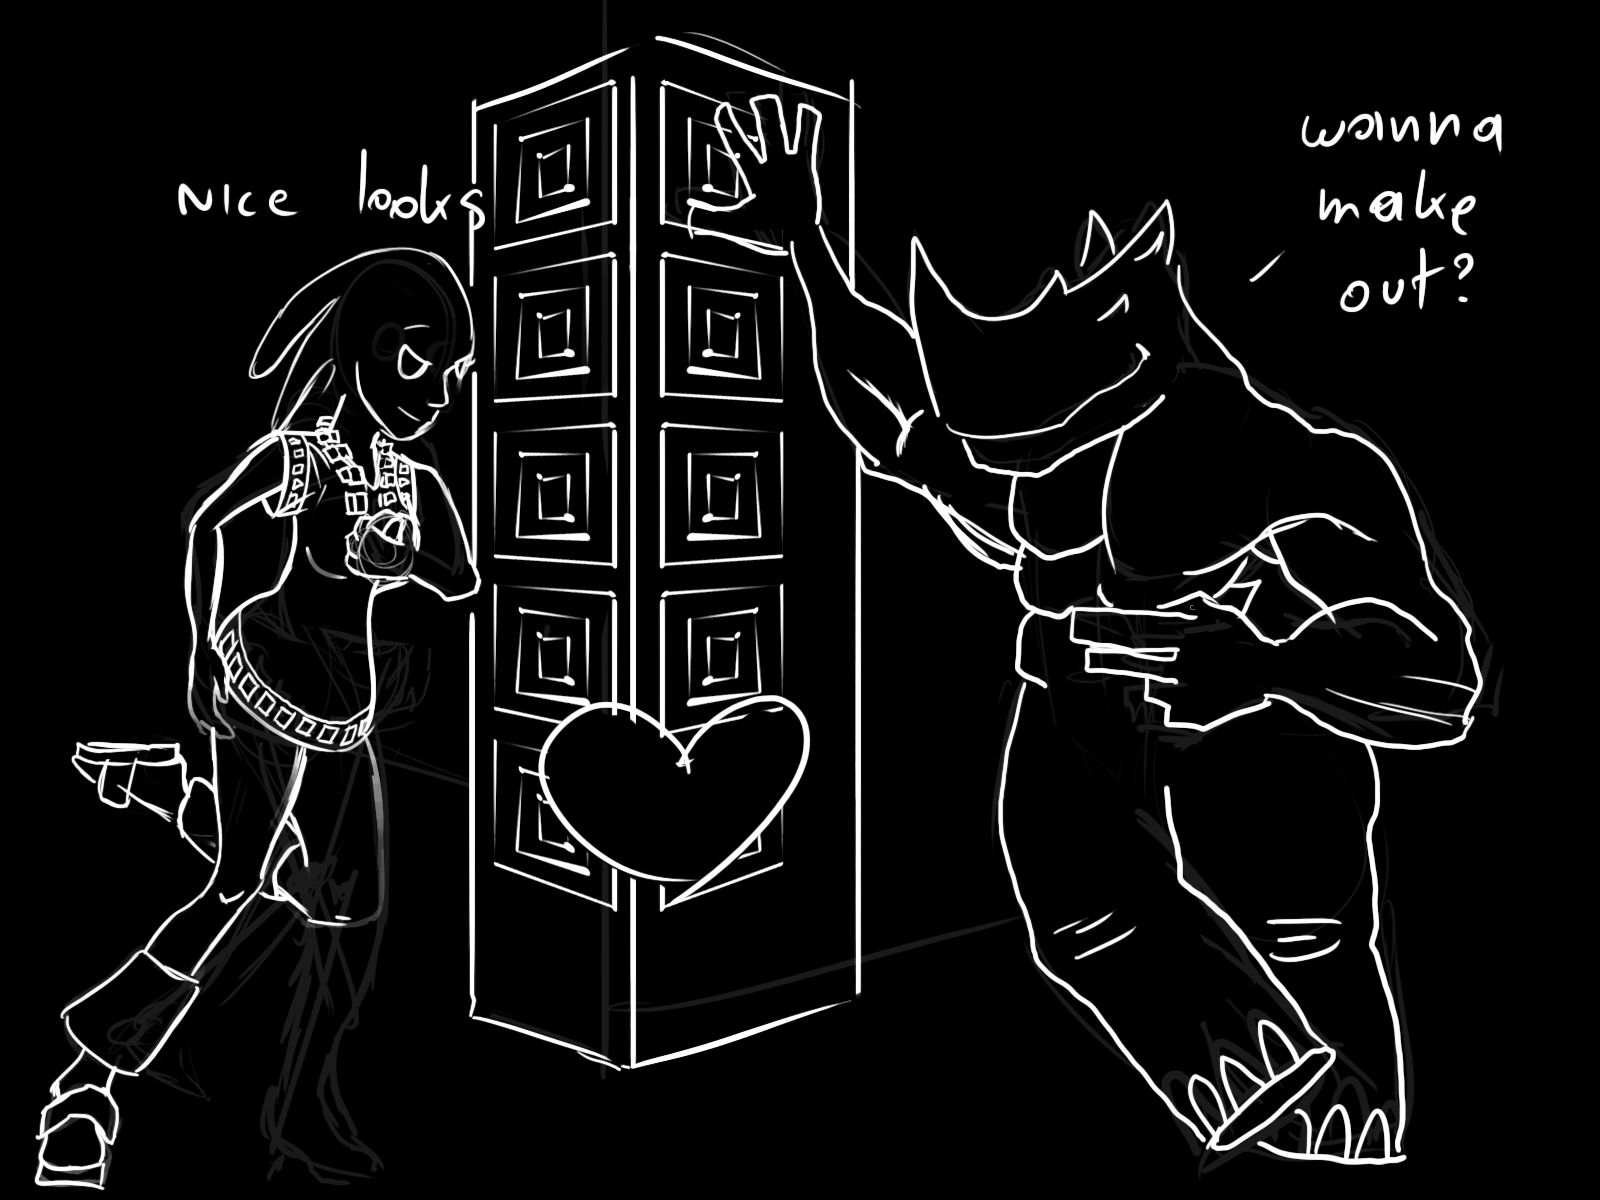 Nice looks
wanna
make
out?